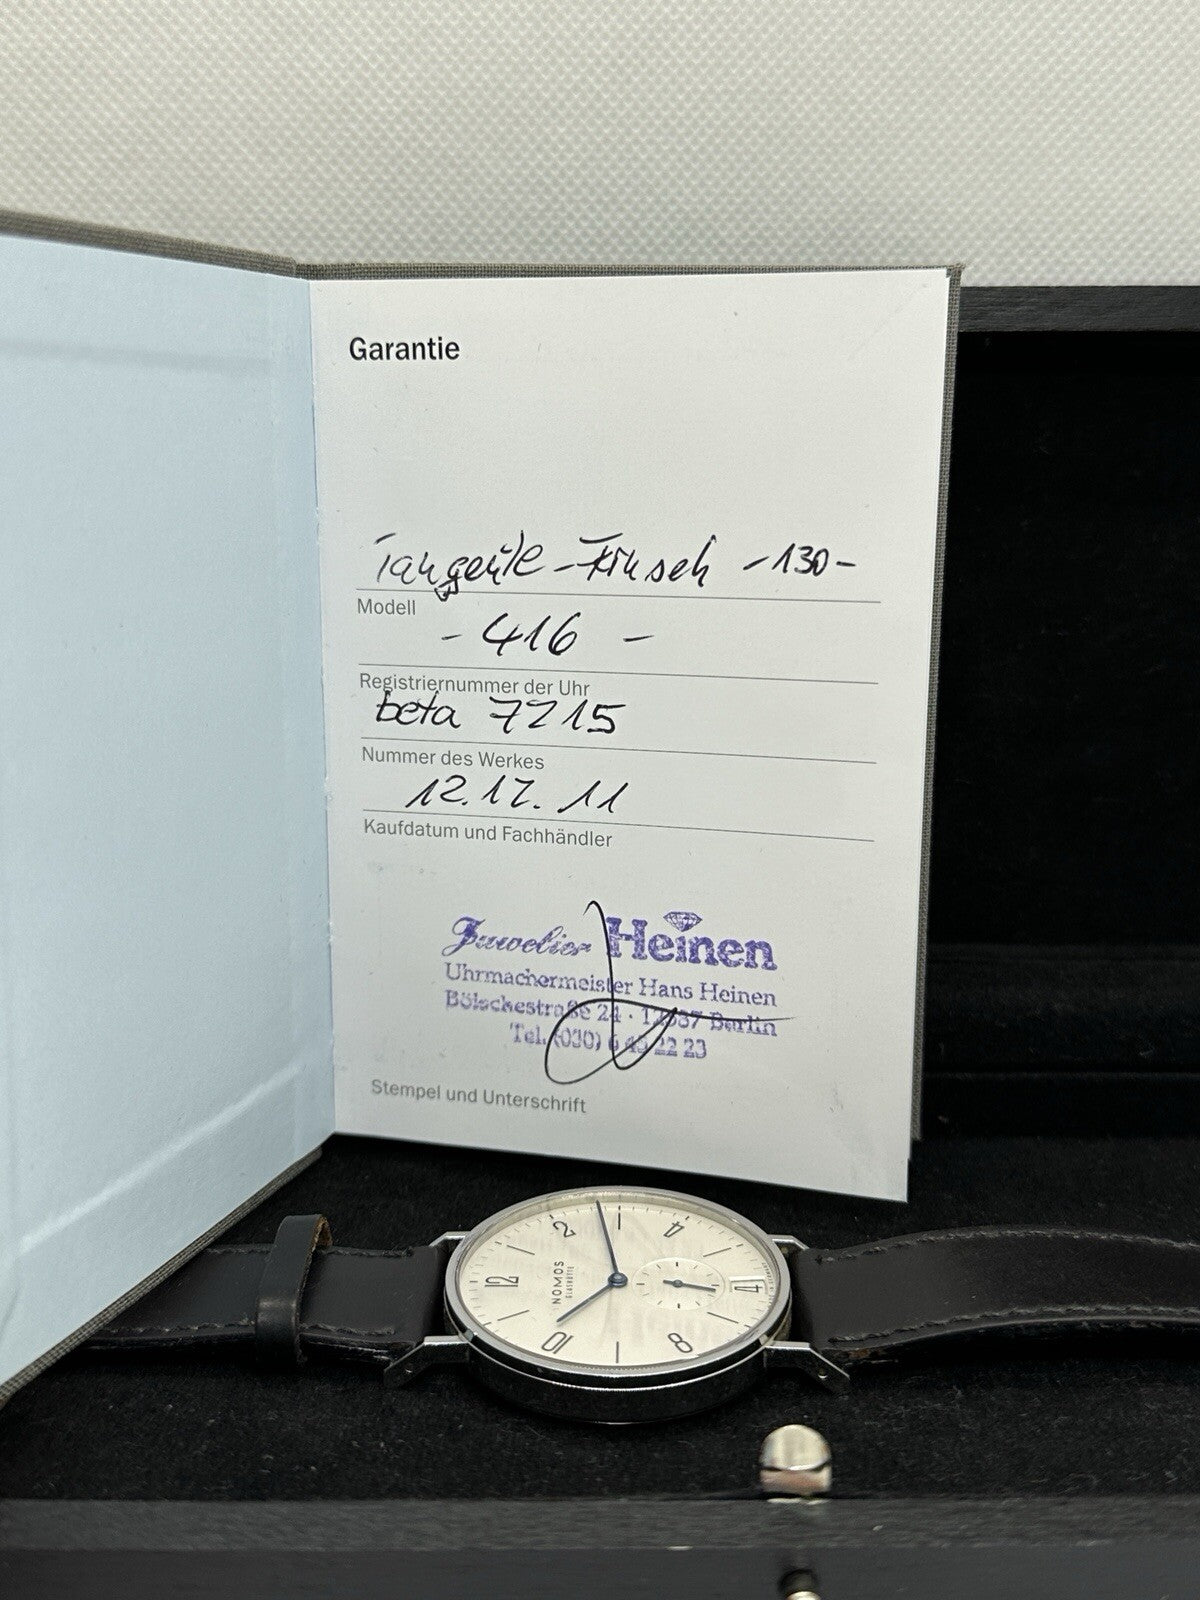 Garantie
Tangente - - 130 -
Modell
- 416 -
Registriernummer der Uhr
beta 7215
Nummer des Werkes
12.12.11
Kaufdatum und Fachhändler
Juwelier Heinen
Uhrmachermeister Hans Heinen
Bölschestraße 24 · 12587 Berlin
Tel. (030) 6 45 22 23
Stempel und Unterschrift
2
4
12
NOMOS
GLASHÜTTE
4
10
8